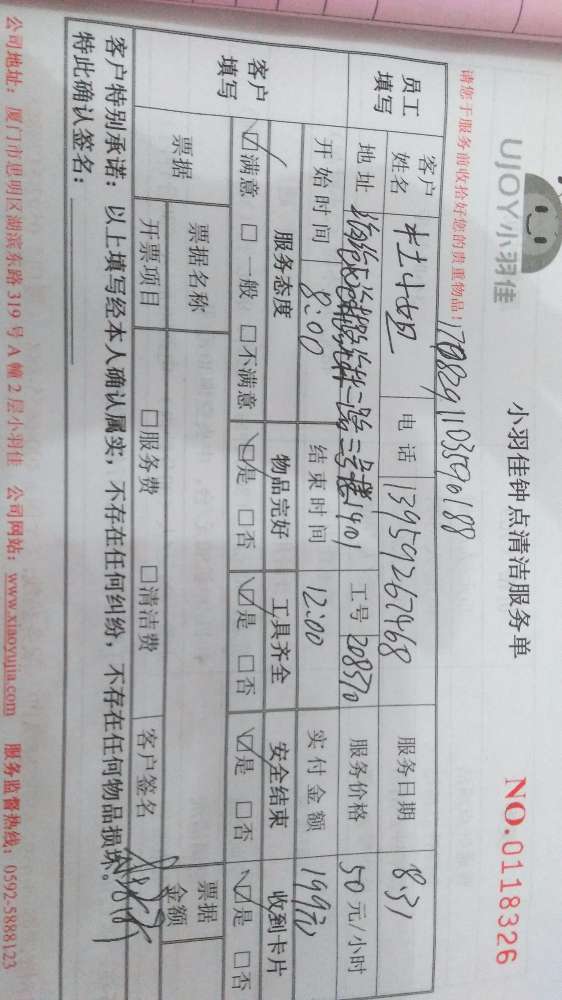 UJOY小羽佳
小羽佳钟点清洁服务单
NO.0118326
请您于服务前收拾好您的贵重物品！
1708291103590188
员工填写
客户姓名
小姐
电话 13959267468
服务日期 8.31
地址
二路三号楼1401
工号 208370
服务价格 50元/小时
开始时间 8:00
结束时间 12:00
实付金额 199元
客户填写
服务态度 物品完好 工具齐全 安全结束 收到卡片
☑满意 □一般 □不满意 ☑是 □否 ☑是 □否 ☑是 □否 ☑是 □否
票据 票据名称 票据金额
开票项目 □服务费 □清洁费 客户签名
客户特别承诺：以上填写经本人确认属实，不存在任何纠纷，不存在任何物品损坏。
特此确认签名：
公司地址：厦门市思明区湖滨东路319号A幢2层小羽佳 公司网站：www.xiaoyujia.com 服务监督热线：0592-5888123